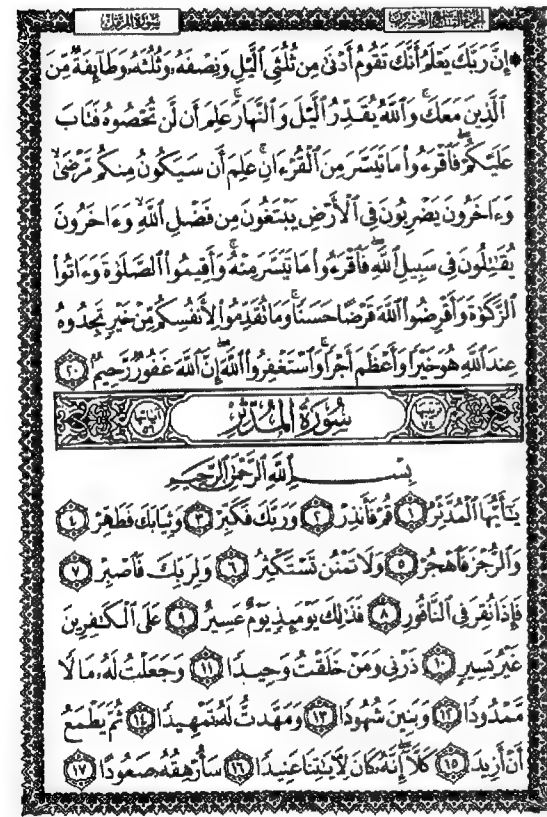 سُورَةُ المُزَّمِّل
الجُزْءُ التَّاسِعُ وَالعِشْرُونَ
۞ إِنَّ رَبَّكَ يَعْلَمُ أَنَّكَ تَقُومُ أَدْنَىٰ مِن ثُلُثَىِ ٱلَّيْلِ وَنِصْفَهُۥ وَثُلُثَهُۥ وَطَآئِفَةٌ مِّنَ
ٱلَّذِينَ مَعَكَ ۚ وَٱللَّهُ يُقَدِّرُ ٱلَّيْلَ وَٱلنَّهَارَ ۚ عَلِمَ أَن لَّن تُحْصُوهُ فَتَابَ
عَلَيْكُمْ ۖ فَٱقْرَءُوا۟ مَا تَيَسَّرَ مِنَ ٱلْقُرْءَانِ ۚ عَلِمَ أَن سَيَكُونُ مِنكُم مَّرْضَىٰ ۙ
وَءَاخَرُونَ يَضْرِبُونَ فِى ٱلْأَرْضِ يَبْتَغُونَ مِن فَضْلِ ٱللَّهِ ۙ وَءَاخَرُونَ
يُقَـٰتِلُونَ فِى سَبِيلِ ٱللَّهِ ۖ فَٱقْرَءُوا۟ مَا تَيَسَّرَ مِنْهُ ۚ وَأَقِيمُوا۟ ٱلصَّلَوٰةَ وَءَاتُوا۟
ٱلزَّكَوٰةَ وَأَقْرِضُوا۟ ٱللَّهَ قَرْضًا حَسَنًا ۚ وَمَا تُقَدِّمُوا۟ لِأَنفُسِكُم مِّنْ خَيْرٍ تَجِدُوهُ
عِندَ ٱللَّهِ هُوَ خَيْرًا وَأَعْظَمَ أَجْرًا ۚ وَٱسْتَغْفِرُوا۟ ٱللَّهَ ۖ إِنَّ ٱللَّهَ غَفُورٌ رَّحِيمٌۢ ٢٠
ترتيبها ٧٤ سُورَةُ المُدَّثِّر آياتها ٥٦
بِسْمِ ٱللَّهِ ٱلرَّحْمَـٰنِ ٱلرَّحِيمِ
يَـٰٓأَيُّهَا ٱلْمُدَّثِّرُ ١ قُمْ فَأَنذِرْ ٢ وَرَبَّكَ فَكَبِّرْ ٣ وَثِيَابَكَ فَطَهِّرْ ٤
وَٱلرُّجْزَ فَٱهْجُرْ ٥ وَلَا تَمْنُن تَسْتَكْثِرُ ٦ وَلِرَبِّكَ فَٱصْبِرْ ٧
فَإِذَا نُقِرَ فِى ٱلنَّاقُورِ ٨ فَذَٰلِكَ يَوْمَئِذٍ يَوْمٌ عَسِيرٌ ٩ عَلَى ٱلْكَـٰفِرِينَ
غَيْرُ يَسِيرٍ ١٠ ذَرْنِى وَمَنْ خَلَقْتُ وَحِيدًا ١١ وَجَعَلْتُ لَهُۥ مَالًا
مَّمْدُودًا ١٢ وَبَنِينَ شُهُودًا ١٣ وَمَهَّدتُّ لَهُۥ تَمْهِيدًا ١٤ ثُمَّ يَطْمَعُ
أَنْ أَزِيدَ ١٥ كَلَّآ ۖ إِنَّهُۥ كَانَ لِـَٔايَـٰتِنَا عَنِيدًا ١٦ سَأُرْهِقُهُۥ صَعُودًا ١٧